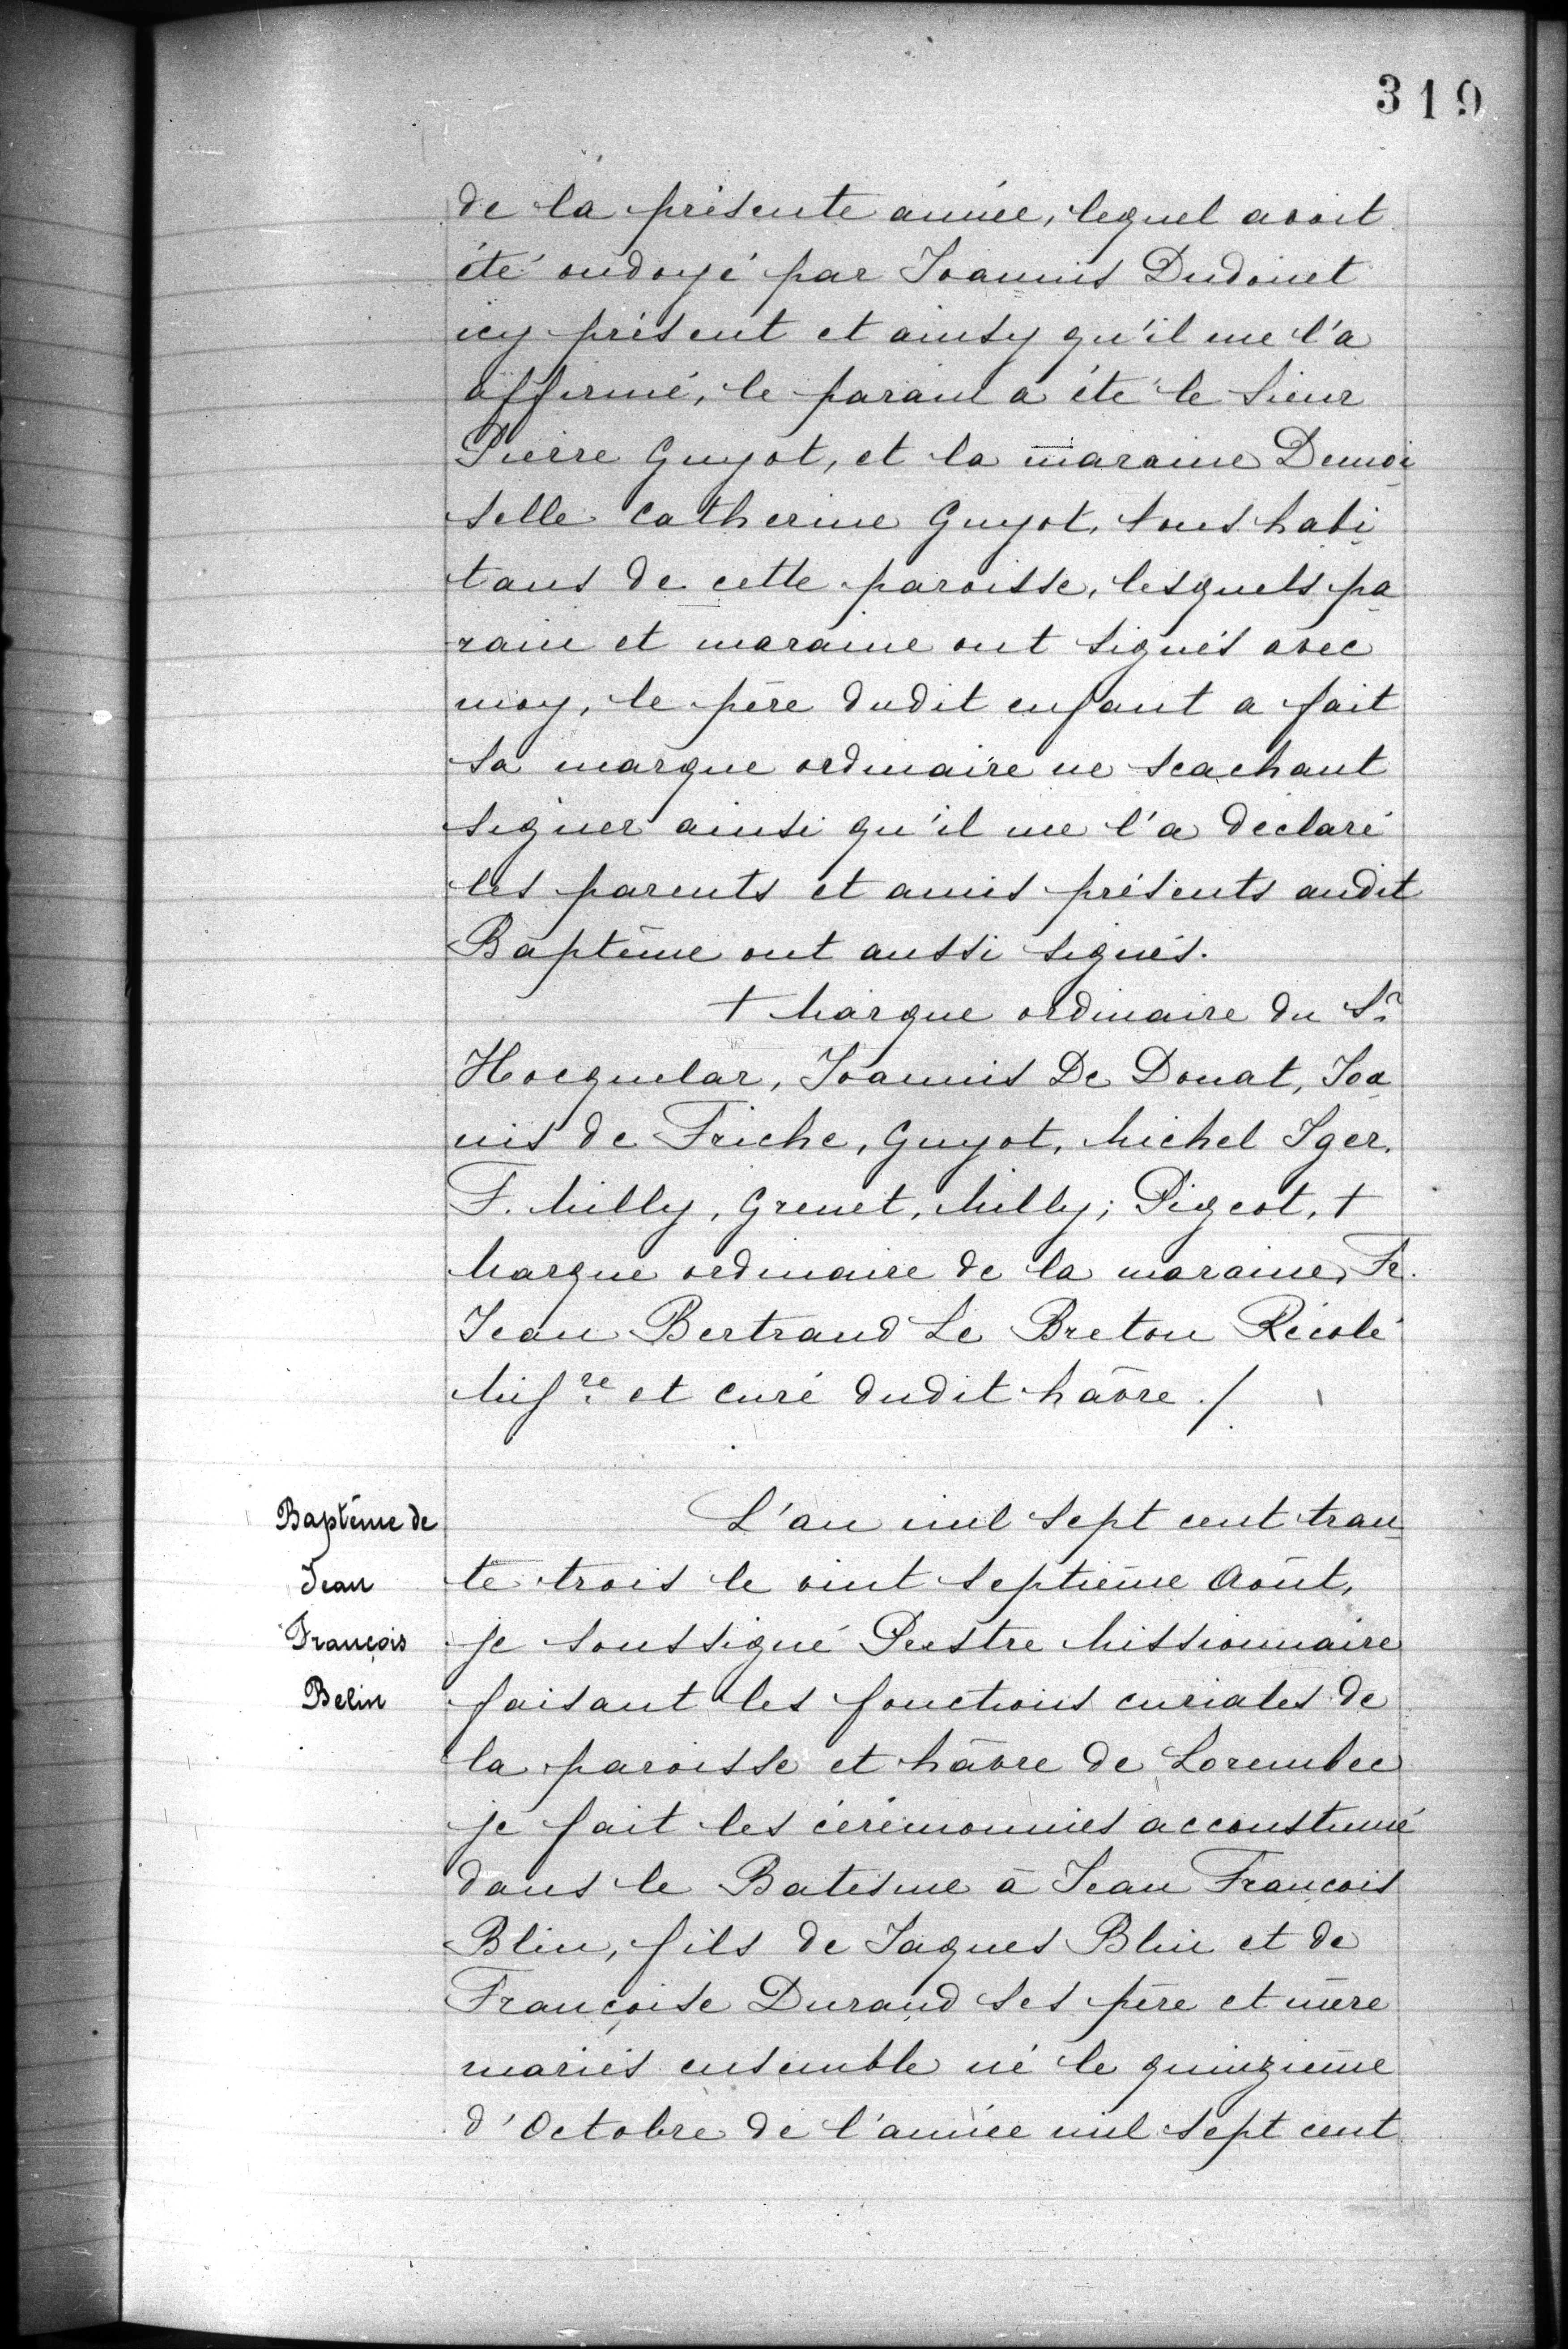 319
de la présente année, lequel avoit
été ondoyé par Joannis Dudouet
icy présent et ainsy qu'il me l'a
affirmé, le parain a été le Sieur
Pierre Guyot, et la maraine Demoi
selle Catherine Guyot, tous habi
tans de cette paroisse, lesquels pa
rain et maraine ont signés avec
moy, le père dudit enfant a fait
sa marque ordinaire ne scachant
signer ainsi qu'il me l'a declaré
les parents et amis présents audit
Baptême ont aussi signés.
+ Marque ordinaire du Sr
Hocquelar, Joannis De Donat, Joa
nis de Friche, Guyot, Michel Iger.
F. Milly, Grenet, Milly; Pigeot, +
Marque ordinaire de la maraine, Fr.
Jean Bertrand Le Breton Récolé
Misre et curé dudit hâvre./
Baptême de
Jean
François
Belin
L'an mil sept cent tran
te trois le vint septième Août,
je soussigné Prestre Missionnaire
faisant les fonctions curiales de
la paroisse et hâvre de Lorembec
je fait les cérémonnies accoustumé
dans le Batesme à Jean François
Blin, fils de Jaques Blin et de
Françoise Durand ses père et mère
mariés ensemble né le quinzième
d'Octobre de l'année mil sept cent